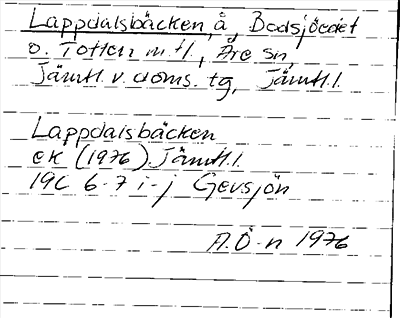 Lappdalsbäcken, å, Bodsjöedet
o. Totten m fl., Åre sn,
Jämtl. v. doms. tg, Jämtl. l.
Lappdalsbäcken
ek (1976) Jämtl. l.
19C 6-7 i-j Gevsjön
A.Ö-n 1976